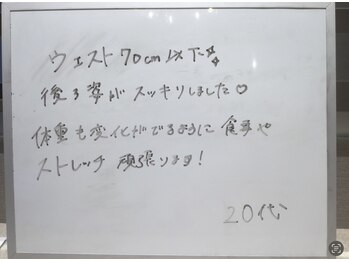 ウエスト70cm以下✨
後ろ姿がスッキリしました♡
体重も変化がでるように 食事や
ストレッチ 頑張ります!
20代